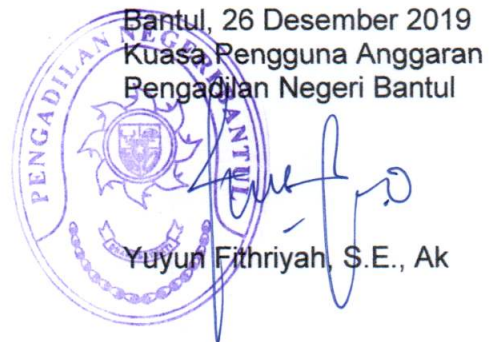 Bantul, 26 Desember 2019
Kuasa Pengguna Anggaran
Pengadilan Negeri Bantul
PENGADILAN NEGERI BANTUL
Yuyun Fithriyah, S.E., Ak